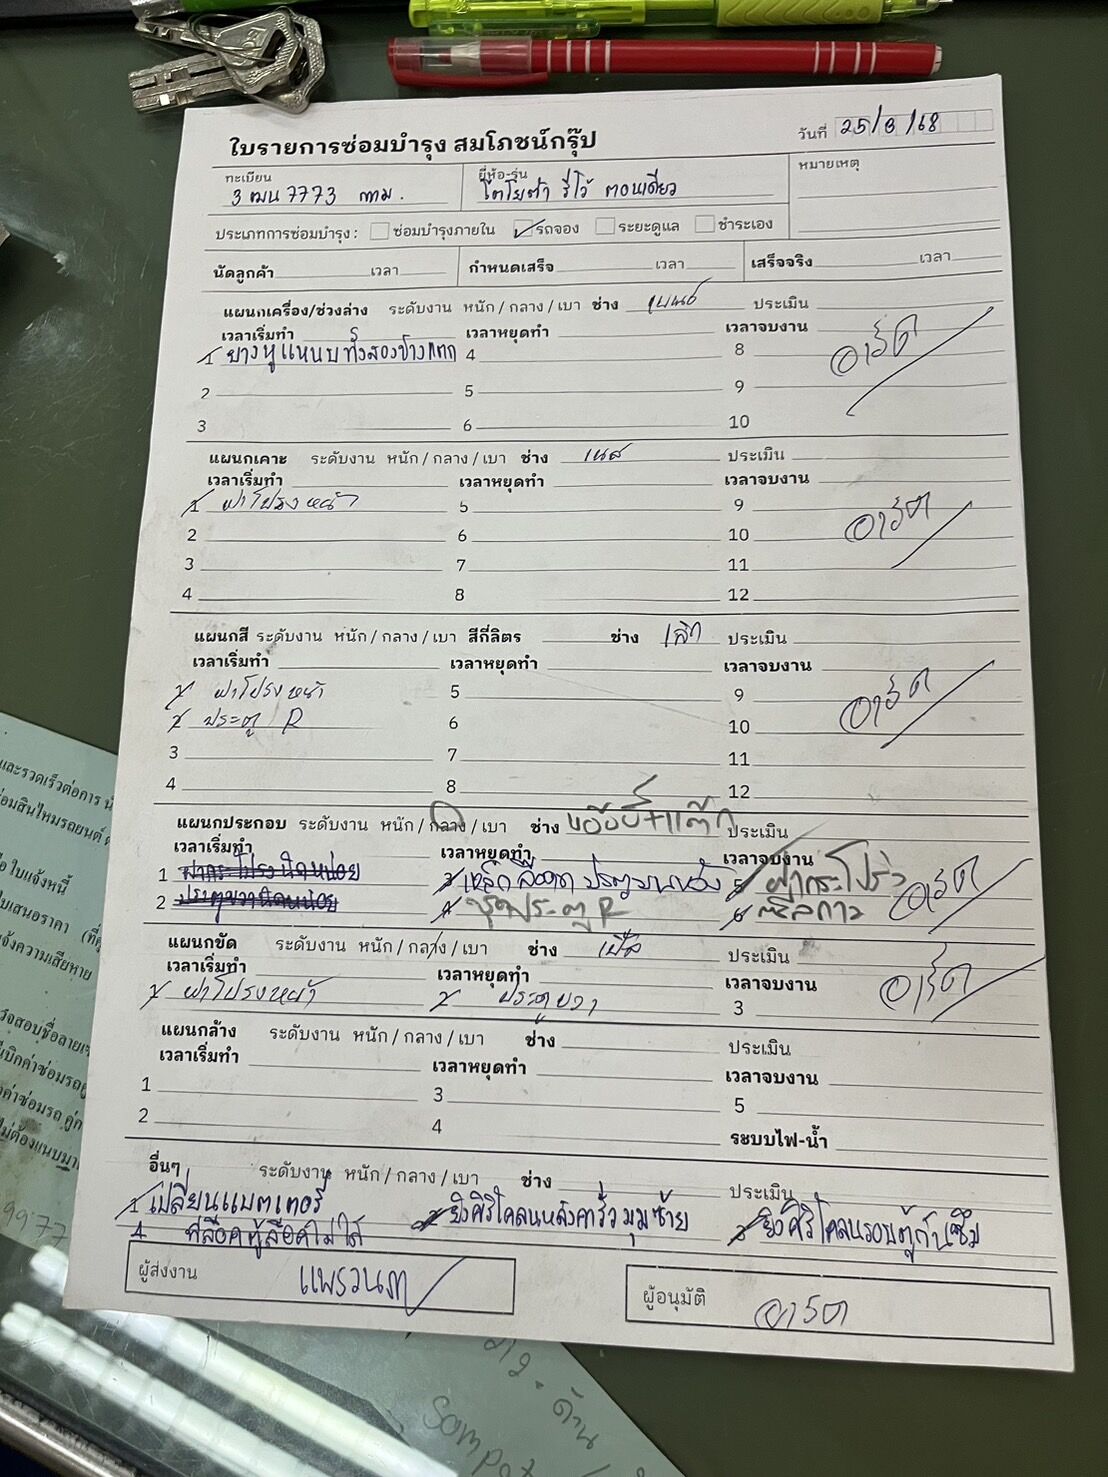 ใบรายการซ่อมบำรุง สมโภชน์กรุ๊ป
วันที่ 25/8/68
ทะเบียน 3 ฒน 7773 กทม.
ยี่ห้อ-รุ่น โตโยต้า รีโว้ ตอนเดียว
หมายเหตุ
ประเภทการซ่อมบำรุง : ซ่อมบำรุงภายใน รถจอง ระยะดูแล ชำระเอง
นัดลูกค้า เวลา กำหนดเสร็จ เวลา เสร็จจริง เวลา
แผนกเครื่อง/ช่วงล่าง ระดับงาน หนัก / กลาง / เบา ช่าง เบนซ์ ประเมิน
เวลาเริ่มทำ เวลาหยุดทำ เวลาจบงาน
1 ยางหูแหนบทั้งสองข้างแตก 4 8 อาร์ต
2 5 9
3 6 10
แผนกเคาะ ระดับงาน หนัก / กลาง / เบา ช่าง ประเมิน
เวลาเริ่มทำ เวลาหยุดทำ เวลาจบงาน
1 ฝาโปรงหน้า 5 9 อาร์ต
2 6 10
3 7 11
4 8 12
แผนกสี ระดับงาน หนัก / กลาง / เบา สีกี่ลิตร ช่าง ประเมิน
เวลาเริ่มทำ เวลาหยุดทำ เวลาจบงาน
1 ฝาโปรงหน้า 5 9 อาร์ต
2 ประตู R 6 10
3 7 11
4 8 12
แผนกประกอบ ระดับงาน หนัก / กลาง / เบา ช่าง ประเมิน
เวลาเริ่มทำ เวลาหยุดทำ เวลาจบงาน
1 ฝากระโปรงนิดหน่อย 3 5 ฝากระโปรง อาร์ต
2 ประตูขวานิดหน่อย 4 ชุดประตู R 6
แผนกขัด ระดับงาน หนัก / กลาง / เบา ช่าง ประเมิน
เวลาเริ่มทำ เวลาหยุดทำ เวลาจบงาน
1 ฝาโปรงหน้า 2 ประตูขวา 3 อาร์ต
แผนกล้าง ระดับงาน หนัก / กลาง / เบา ช่าง ประเมิน
เวลาเริ่มทำ เวลาหยุดทำ เวลาจบงาน
1 3 5
2 4 ระบบไฟ-น้ำ
อื่นๆ ระดับงาน หนัก / กลาง / เบา ช่าง ประเมิน
1 เปลี่ยนแบตเตอรี่ 2 ยิงศิริโคลนหลังคารั่วมุมซ้าย 3 ยิงศิริโคลนรอบตู้กันซึม
4 ที่ล็อคตู้ล็อคไม่ได้
ผู้ส่งงาน แพรวนภา
ผู้อนุมัติ อาร์ต
และรวดเร็วต่อการ
ซ่อมสินไหมรถยนต์
ใบแจ้งหนี้
ใบเสนอราคา
แจ้งความเสียหาย
9977